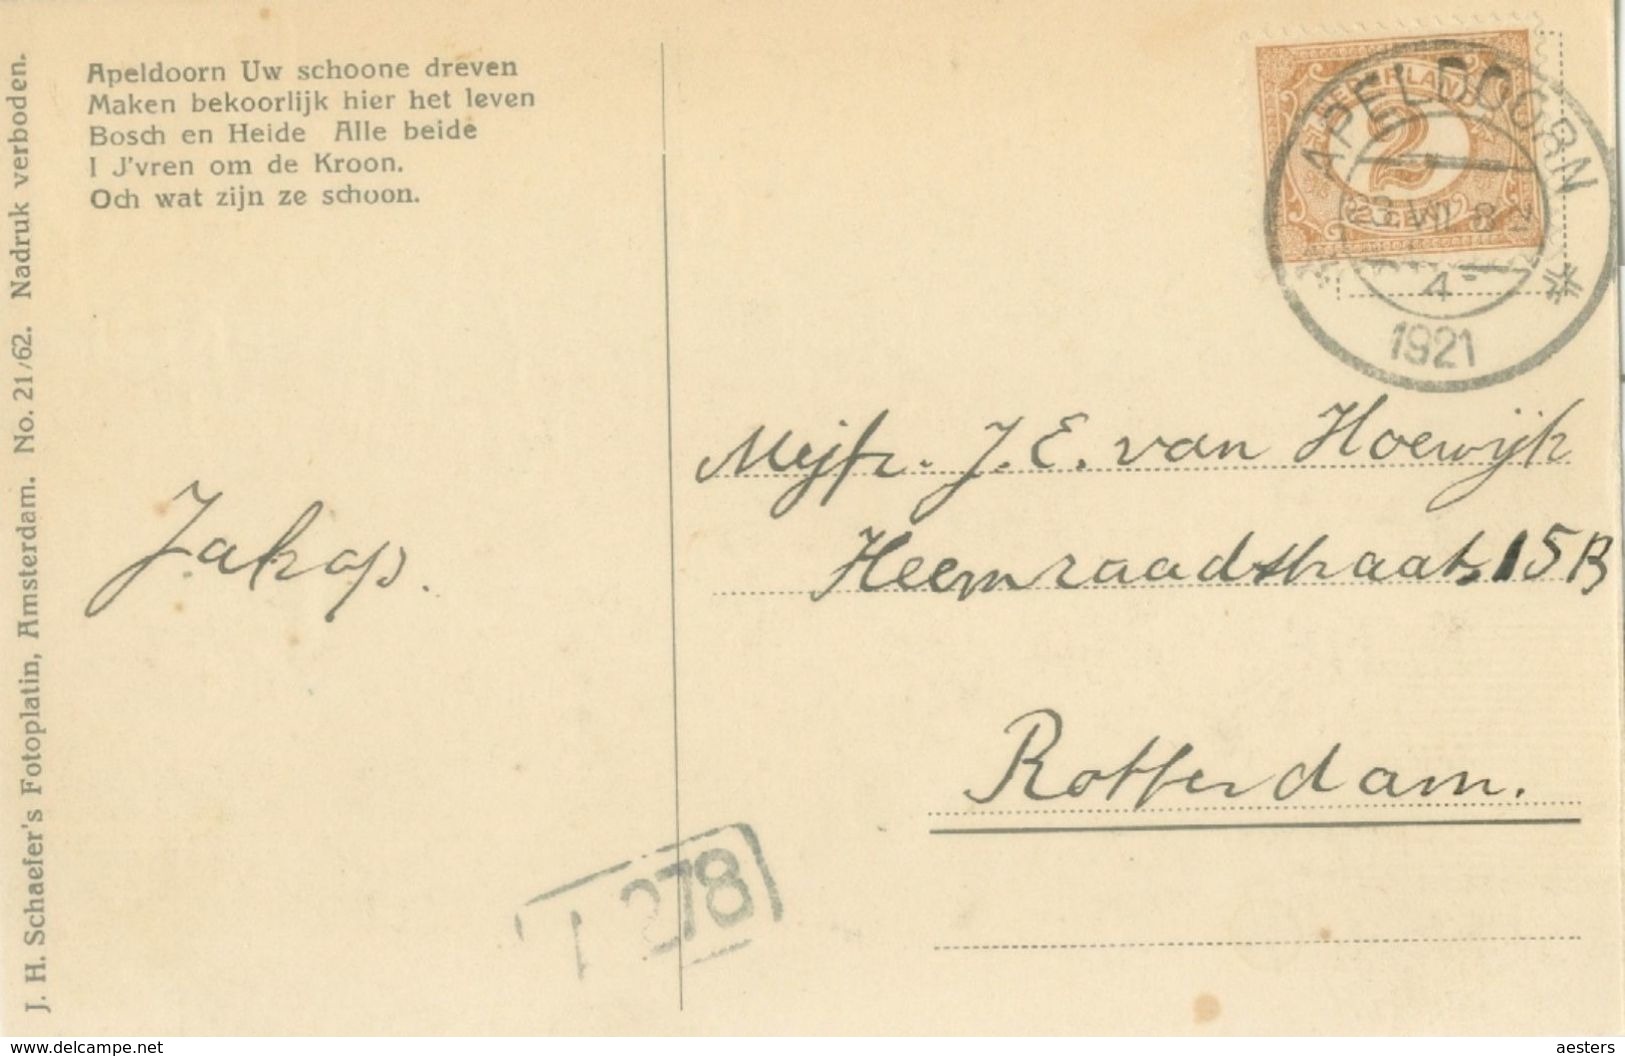 Apeldoorn Uw schoone dreven
Maken bekoorlijk hier het leven
Bosch en Heide Alle beide
I J'vren om de Kroon.
Och wat zijn ze schoon.
J. H. Schaefer's Fotoplatin, Amsterdam. No. 21/62. Nadruk verboden.
NEDERLAND
2
2 CENT
APELDOORN
1921
Jakop.
Mejfr. J. E. van Hoewijk
Heemraadstraat 15B
Rotterdam.
278
www.delcampe.net
aesters